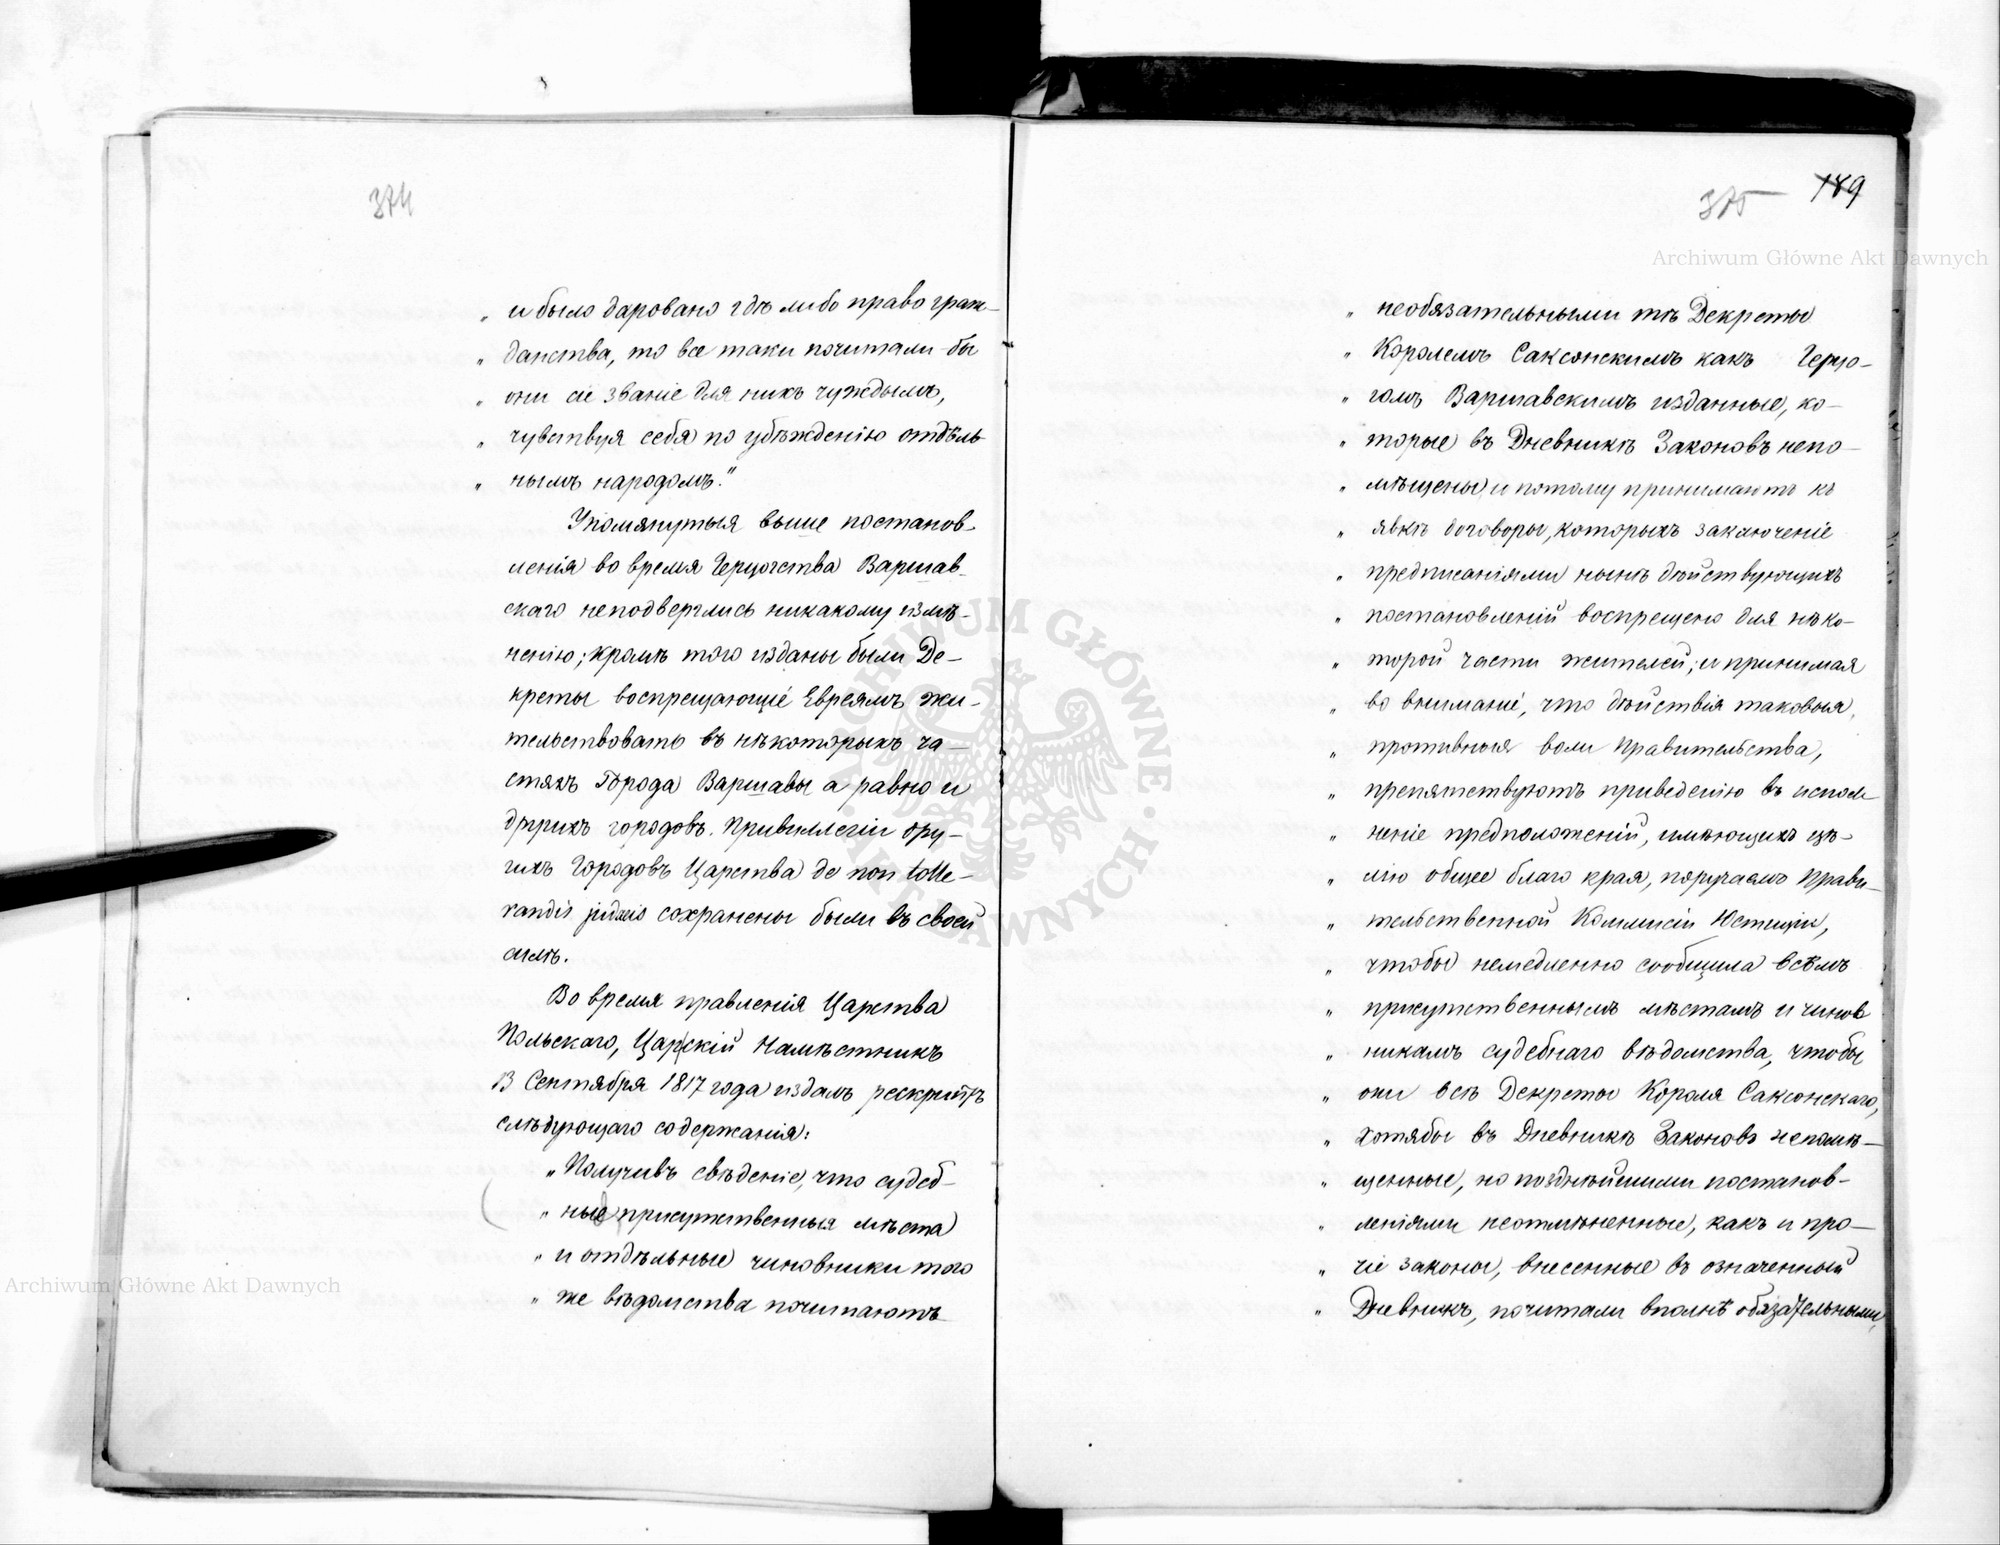 374
„ и было даровано гдѣ либо право граж-
„ данства, то все таки почитали-бы
„ они сіе званіе для нихъ чуждымъ,
„ чувствуя себя по убѣжденію отдѣль
„ нымъ народомъ."
Упомянутыя выше постанов-
ленія во время Герцогства Варшав-
скаго неподверглись никакому измѣ-
ненію; кромѣ того изданы были Де-
креты воспрещающіе Евреямъ жи-
тельствовать въ нѣкоторыхъ ча-
стяхъ Города Варшавы а равно и
другихъ городовъ. Привиллегіи дру-
гихъ Городовъ Царства de non tolle-
randis judaeis сохранены были въ своей
силѣ.
Во время правленія Царства
Польскаго, Царскій Намѣстникъ
13 Сентября 1817 года издалъ рескриптъ
слѣдующаго содержанія:
„ Получивъ свѣденіе, что судеб-
„ ные присутственныя мѣста
„ и отдѣльные чиновники того
„ же вѣдомства почитаютъ
375 189
Archiwum Główne Akt Dawnych
„ необязательными тѣ Декреты
„ Королемъ Саксонскимъ какъ Герцо-
„ гомъ Варшавскимъ изданные, ко-
„ торые въ Дневникѣ Законовъ непо-
„ мѣщены, и потому принимаютъ къ
„ явкѣ договоры, которыхъ заключеніе
„ предписаніями нынѣ дѣйствующихъ
„ постановленій воспрещено для нѣко-
„ торой части жителей; и принимая
„ во вниманіе, что дѣйствія таковыя,
„ противныя воли Правительства,
„ препятствуютъ приведенію въ испол-
„ неніе предположеній, имѣющихъ цѣ-
„ лію общее благо края, поручаемъ Прави-
„ тельственной Коммисіи Юстиціи,
„ чтобы немедленно сообщила всѣмъ
„ присутственнымъ мѣстамъ и чинов
„ никамъ судебнаго вѣдомства, чтобы
„ они всѣ Декреты Короля Саксонскаго,
„ хотябы въ Дневникѣ Законовъ непомѣ-
„ щенные, но позднѣйшими постанов-
„ леніями неотмѣненные, какъ и про-
„ чіе законы, внесенные въ означенный
„ Дневникъ, почитали вполнѣ обязательными,
ARCHIWUM GŁÓWNE AKT DAWNYCH
Archiwum Główne Akt Dawnych